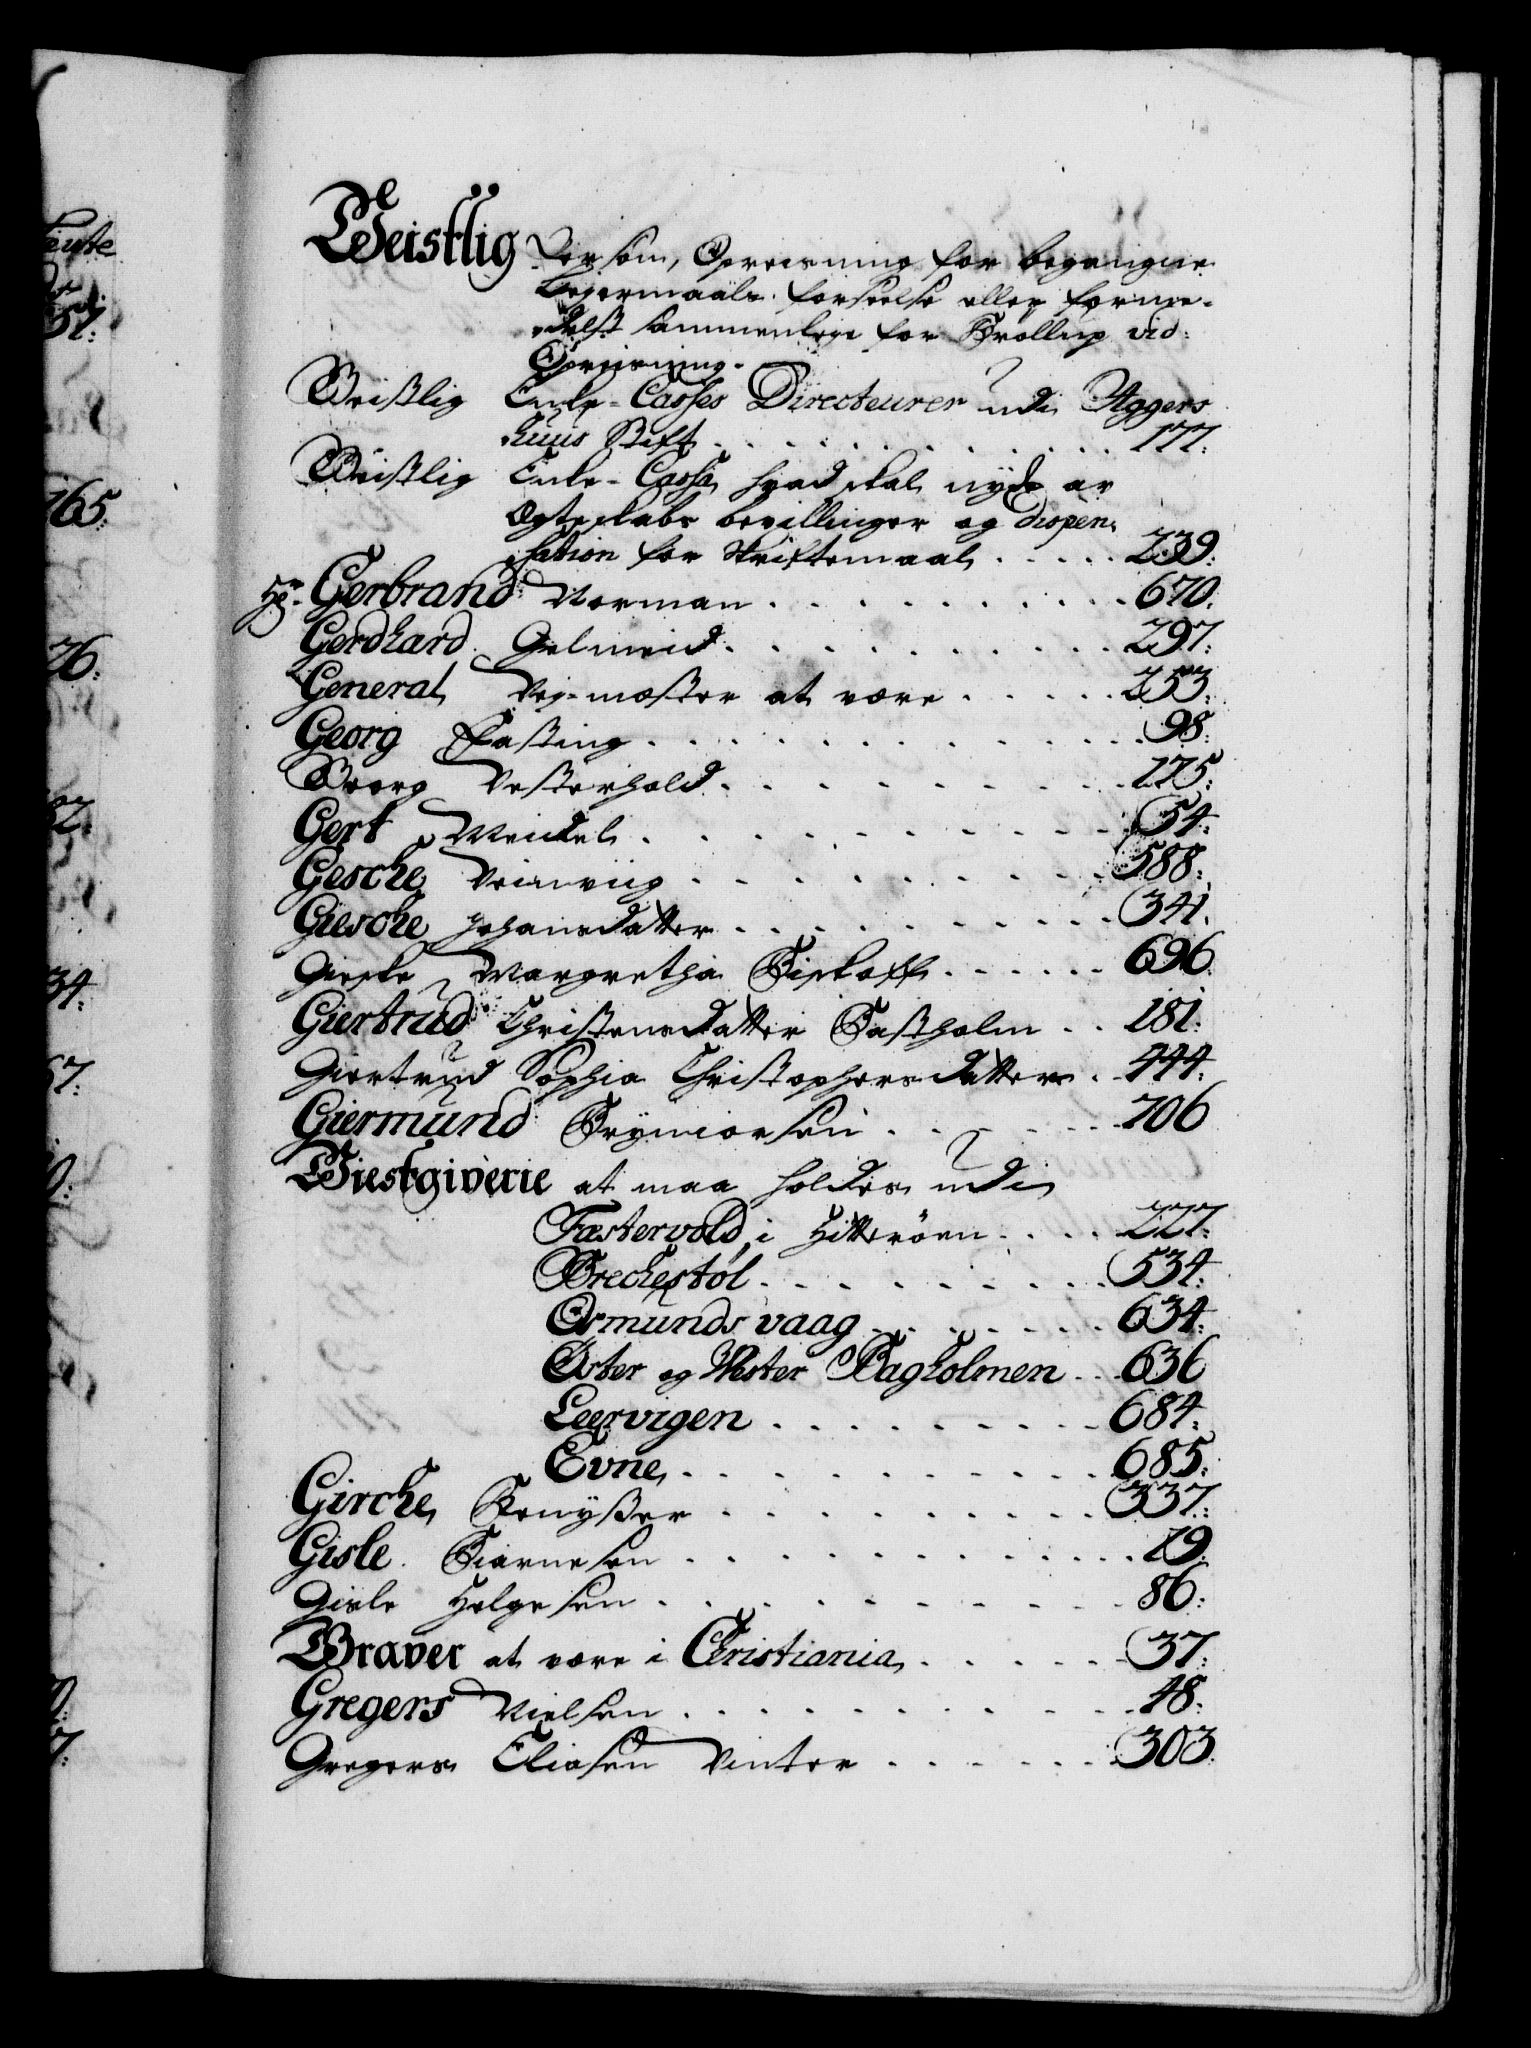 Geistlig Person, Opreisning for begangne
Leyermaals forseelse eller forme-
delst sammenleye for Brøllup vid:
Opreisning.
Geistlig Enke-Casses Directeurer udi Aggers
huus Stift . . . 177.
Geistlig Enke-Cassa, hvad skal nyde av
Ægteskabs bevillinger og dispen,
sation for Skriftemaal . . . 239.
Hr. Gerbrand Norman . . . 670.
Gerdhard Gelmeid . . . 297.
General Vej-mæster at være . . . 253.
Georg Fasting . . . 98.
Georg Vesterhold . . . 275.
Gert Meidel . . . 54.
Gesche Veinviig . . . 588.
Giesche Johansdatter . . . 341.
Gieske Margretha Biskoff . . . 696.
Giertrud Christensdatter Bastholm . . 181.
Giertrud Sophia Christophersdatter . 444.
Giermund Brynior sen . . . 706
Giestgiverie at maa holdes udi
Fæstervold, i Hitterøen . . . 227.
Brechestøl . . . 534.
Osmunds vaag . . . 634.
Øster og Wester Bagholmen . . 636
Leervigen . . . 684.
Evne . . . 685.
Girche Benysser . . . 337.
Gisle Biarnesen . . . 29.
Gisle Helgesen . . . 86.
Graver at være i Christiania . . . 37.
Gregers Nielsen . . . 48.
Gregers Eliasen Vinter . . . 303.